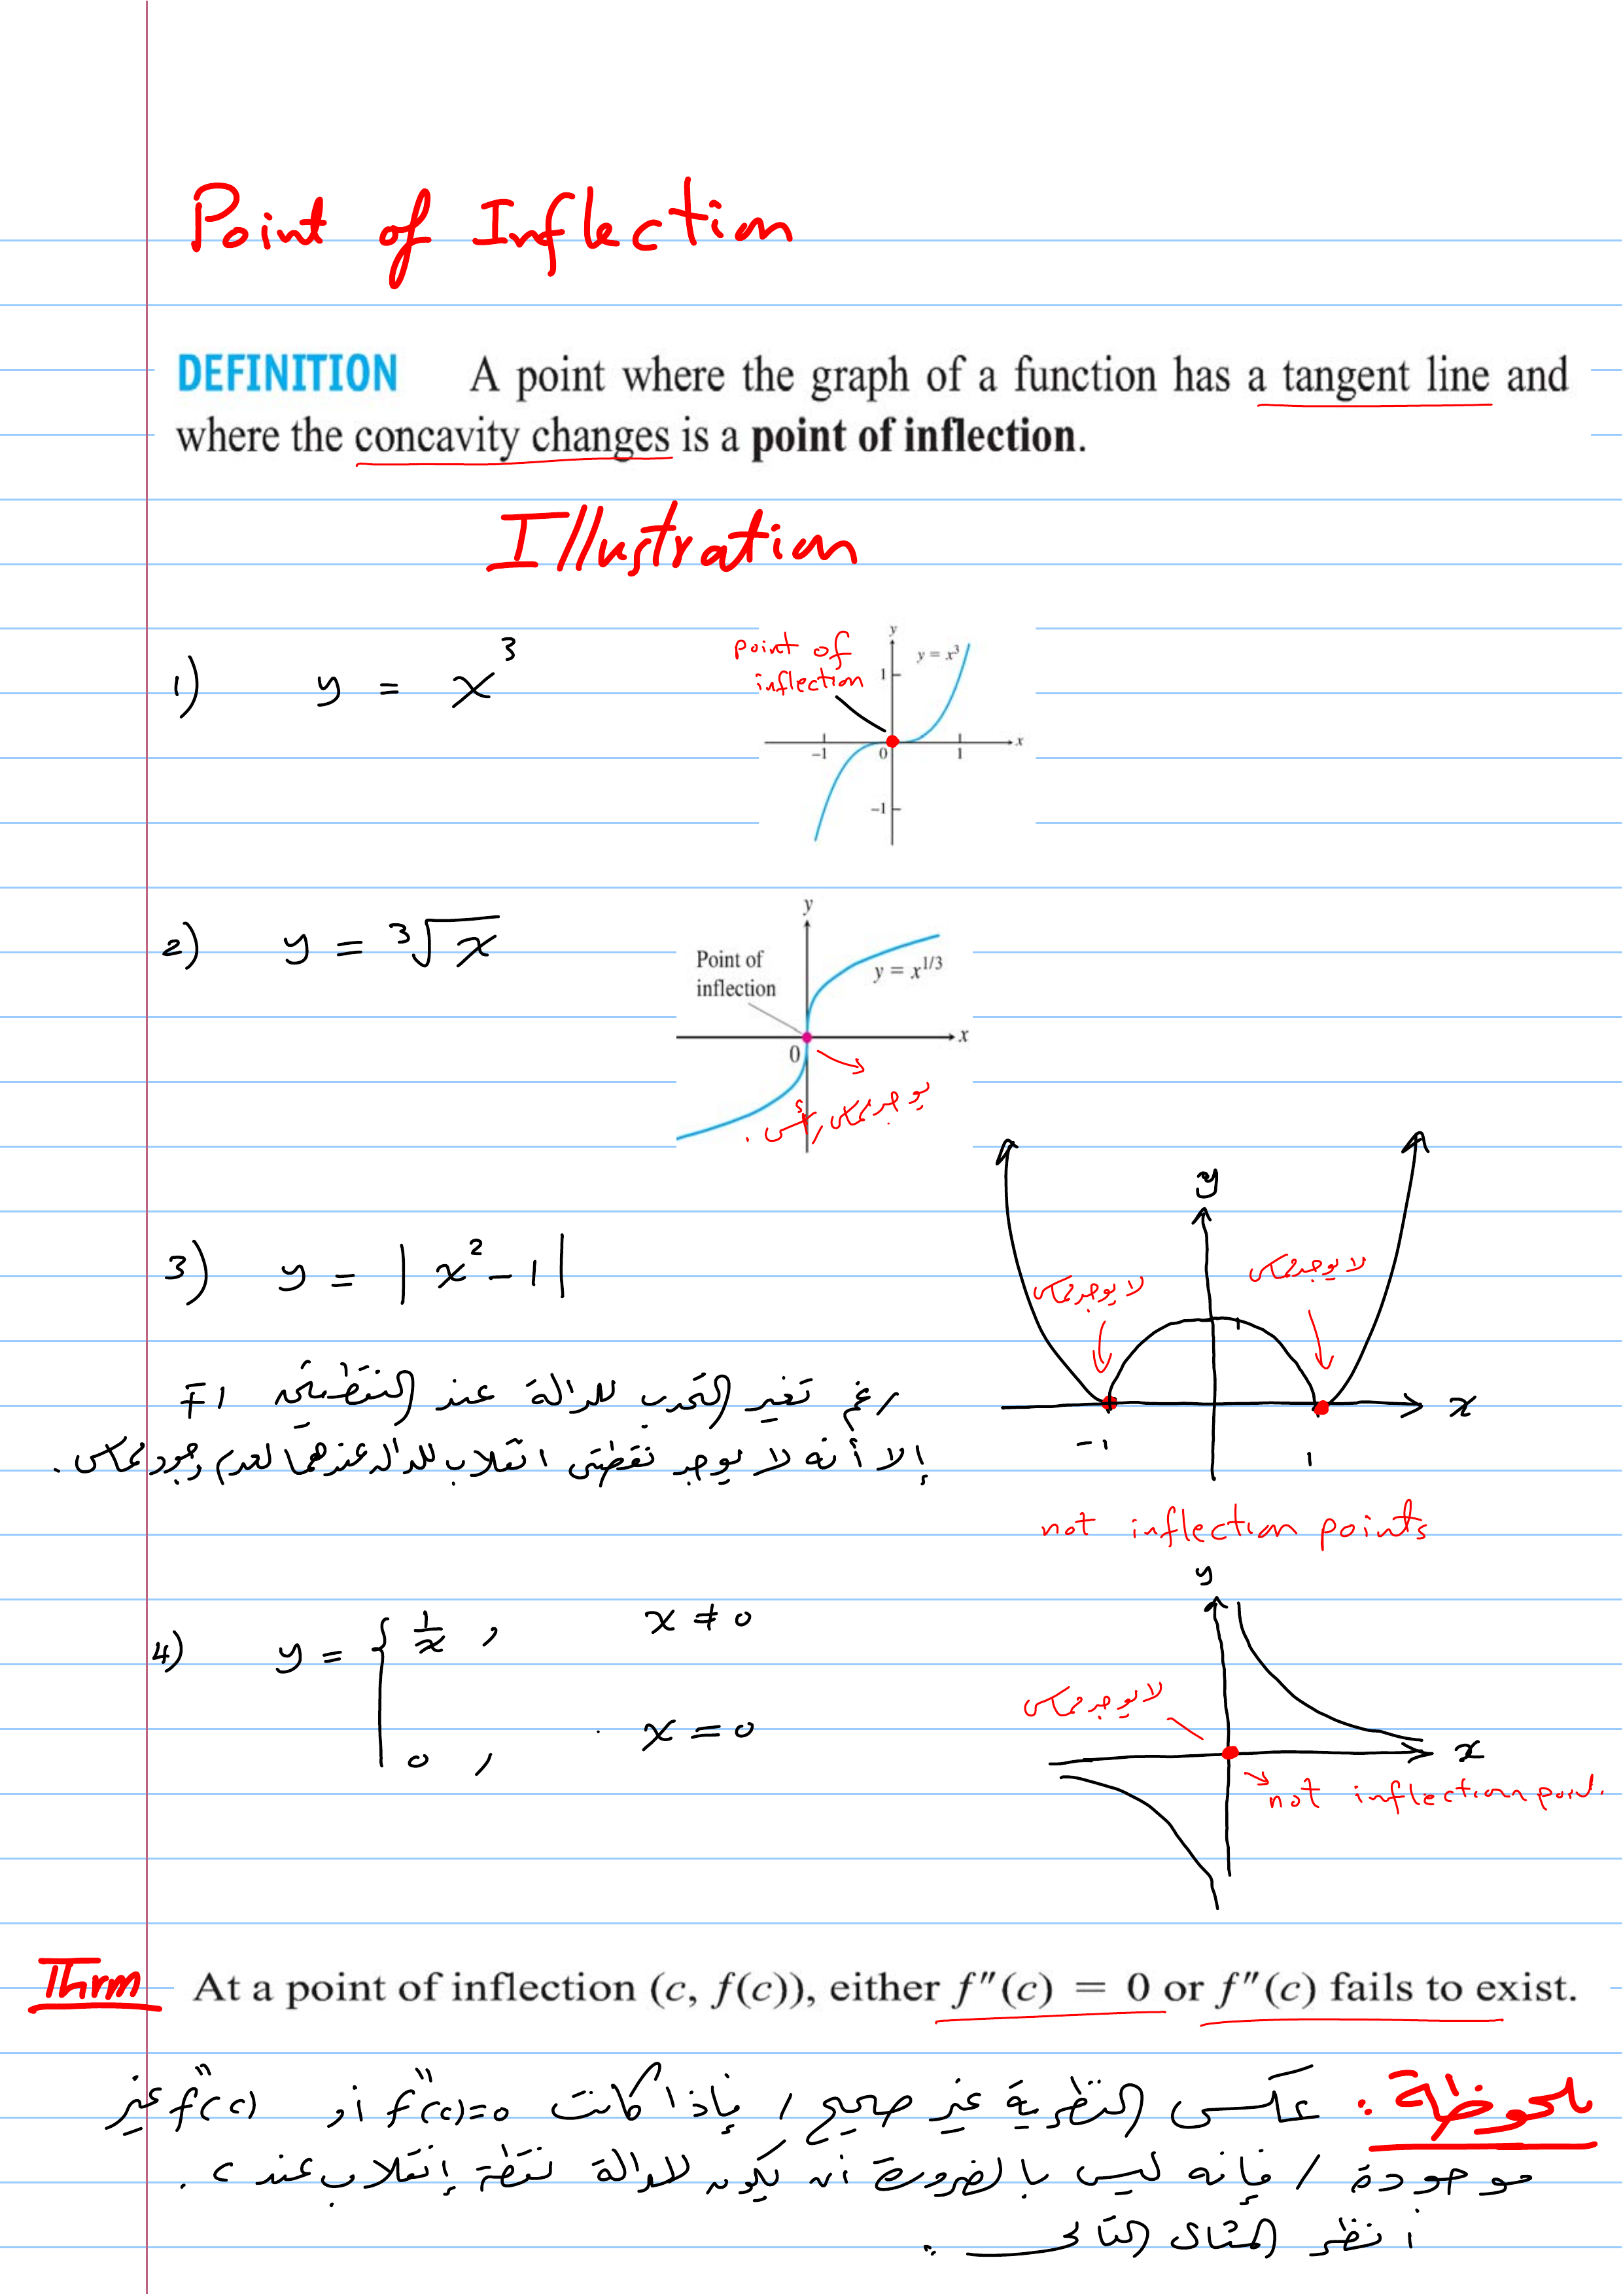 Point of Inflection
DEFINITION A point where the graph of a function has a tangent line and
where the concavity changes is a point of inflection.
Illustration
1) y = x³
point of
inflection
y
y = x³
1
x
-1
0
1
-1
2) y = ∛x
y
Point of
inflection
y = x^{1/3}
x
0
يوجد مماس رأسي.
3) y = |x² - 1|
y
لا يوجد مماس
لا يوجد مماس
1
x
-1
1
رغم تغير التحدب للدالة عند النقطتين ∓1
إلا أنه لا يوجد نقطتي انقلاب للدالة عندهما لعدم وجود مماس.
not inflection points
4) y = { 1/x , x ≠ 0
0 , x = 0
y
لا يوجد مماس
x
not inflection point.
Thrm At a point of inflection (c, f(c)), either f″(c) = 0 or f″(c) fails to exist.
ملحوظة: عكس النظرية غير صحيح, فإذا كانت f″(c)=0 أو f″(c) غير
موجودة, فإنه ليس بالضرورة أن يكون للدالة نقطة إنقلاب عند c.
أنظر المثال التالي: